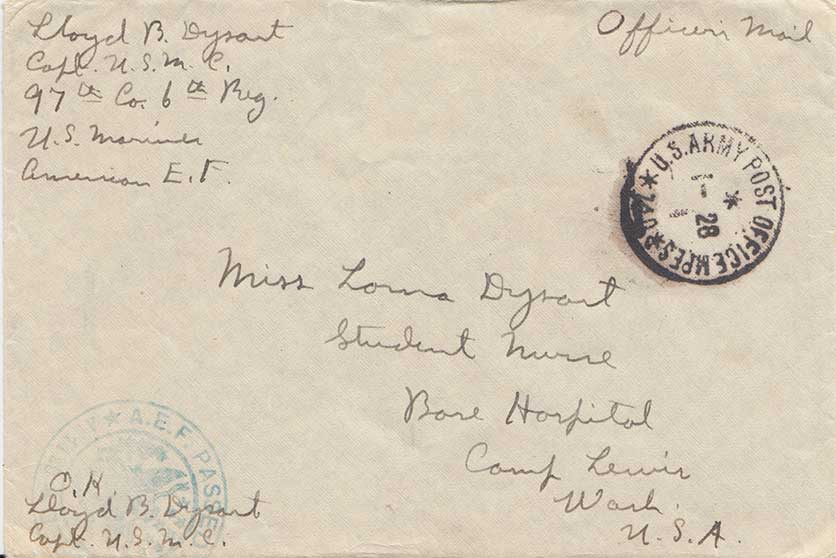 Lloyd B. Dysart
Capt. U.S.M.C.
97th Co. 6th Reg.
U.S. Marines
American E.F.
Officer's Mail
U.S. ARMY POST OFFICE M.P.E.S. 740
28
Miss Lorna Dysart
Student Nurse
Base Hospital
Camp Lewis
Wash.
U.S.A.
A.E.F. PASSED
O.K.
Lloyd B. Dysart
Capt. U.S.M.C.